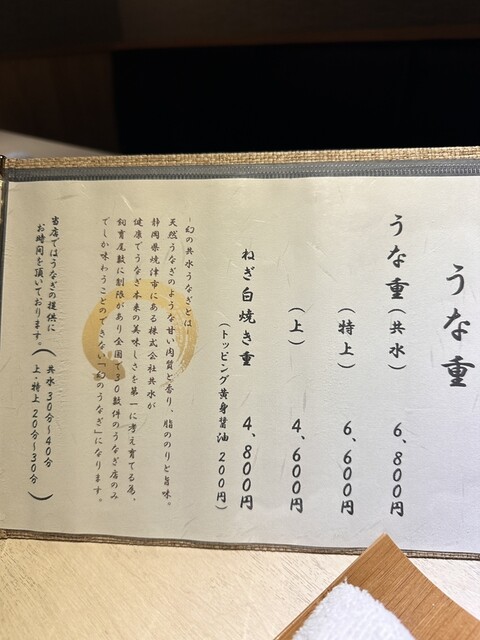 うな重
うな重(共水) 6,800円
(特上) 6,600円
(上) 4,600円
ねぎ白焼き重 4,800円
(トッピング黄身醤油 200円)
~幻の共水うなぎとは~
天然うなぎのような甘い肉質と香り、脂ののりと旨味。
静岡県焼津市にある株式会社共水が
健康でうなぎ本来の美味しさを第一に考え育てる為、
飼育尾数に制限があり全国で30数件のうなぎ店のみ
でしか味わうことのできない「幻のうなぎ」になります。
当店ではうなぎの提供に
お時間を頂いております。
(共水 30分~40分
上・特上 20分~30分)